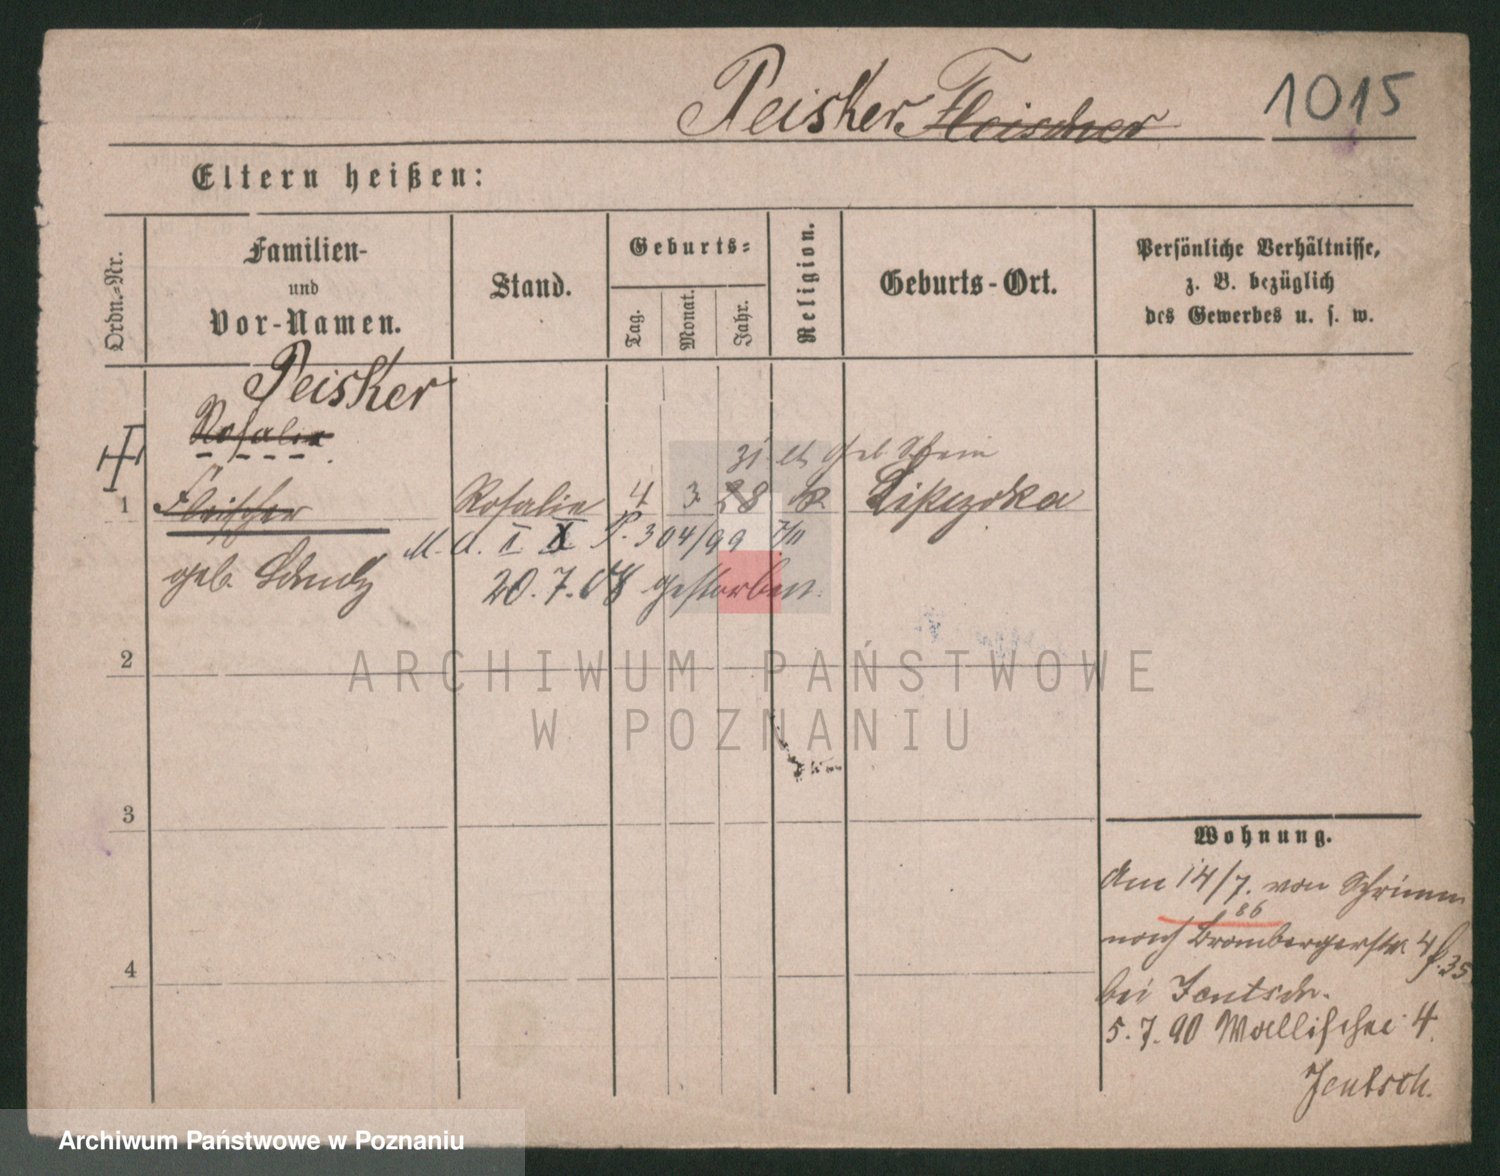 Peisker Fleischer 1015
Eltern heißen:
Ordn.-Nr.
Familien-
und
Vor-Namen.
Stand.
Geburts-
Tag.
Monat.
Jahr.
Religion.
Geburts-Ort.
Persönliche Verhältnisse,
z. B. bezüglich
des Gewerbes u. s. w.
Peisker
Rosalie
1 Fleischer Rosalie 4 3 28
M. d. I X P. 304/99 7/11
geb. 20. 7. 08 gestorben.
2
ARCHIWUM PAŃSTWOWE
W POZNANIU
3
Wohnung.
Am 14/7. von Schrimm
86
nach Brombergerstr. 4 P. 35
bei Jentsch.
4
5. 7. 90 Wallischei 4.
Jentsch.
Archiwum Państwowe w Poznaniu